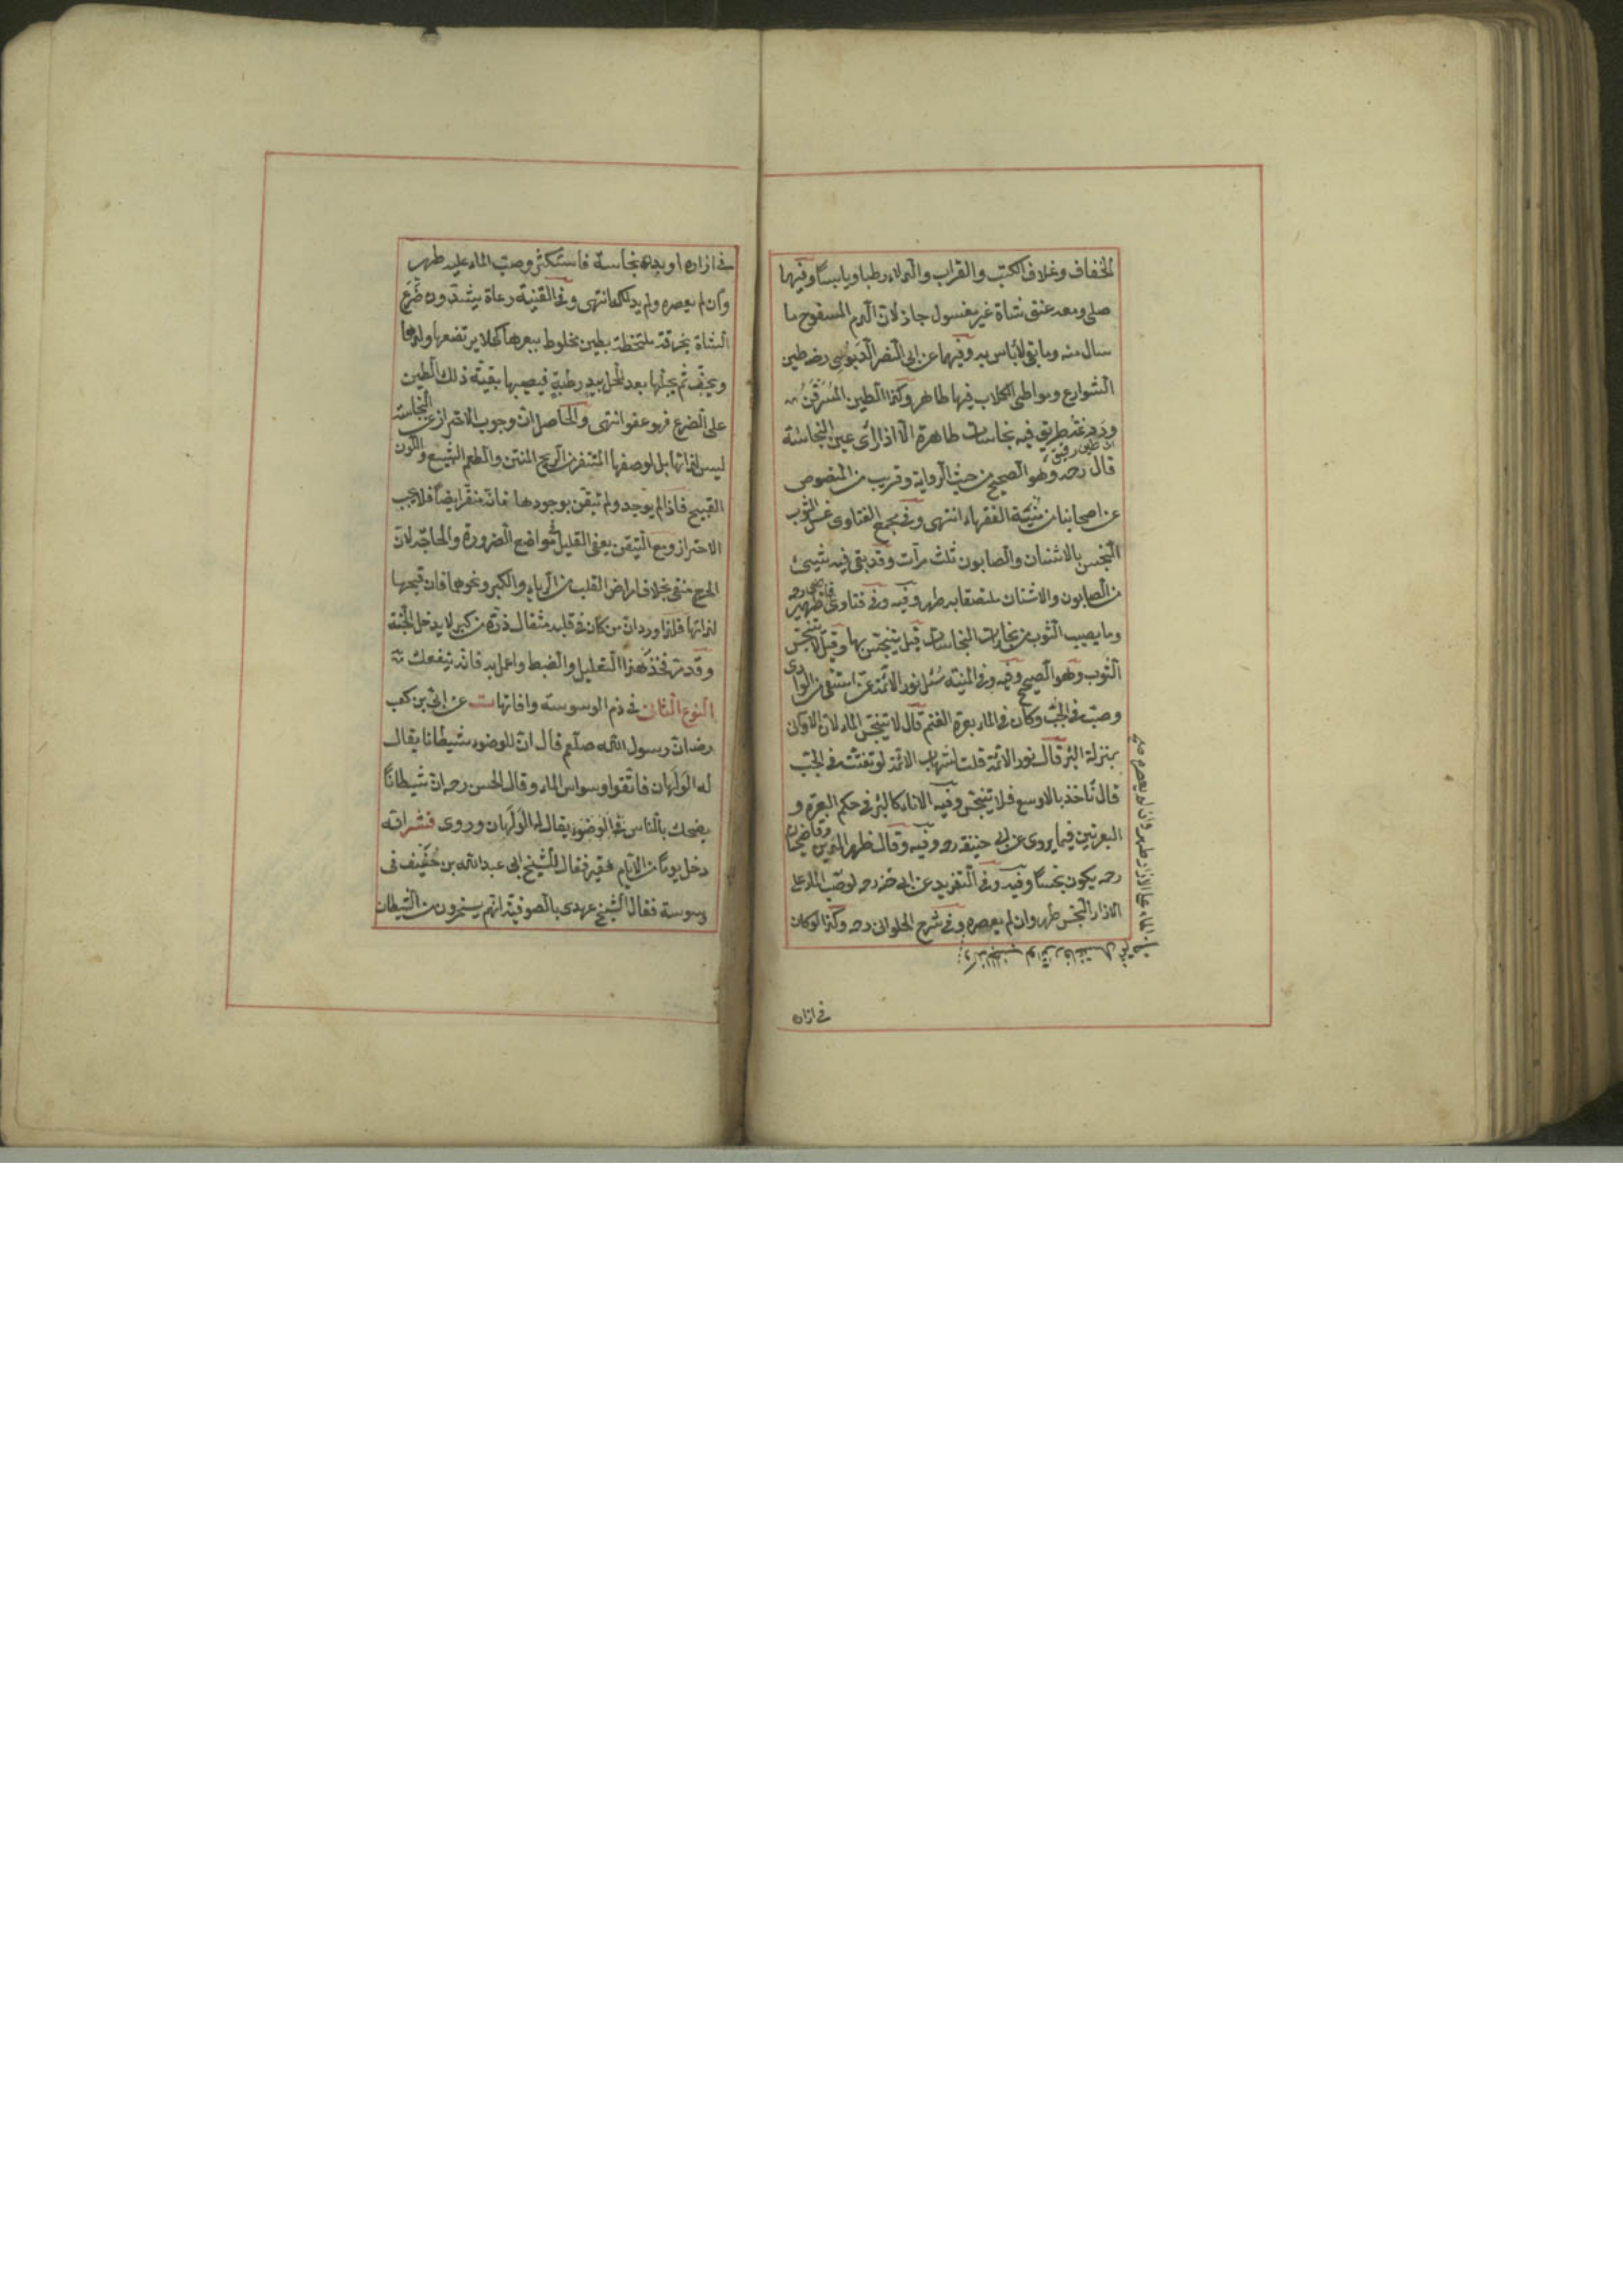 الخفاف وغلاف الكتب والقراب والدلاء رطبا ويابسا وفيها
صلى ومعه عنق شاة غير مغسول جاز لان الدم المسفوح ما
سال منه وما بقى لاباس به وفيها عن ابى النصر الدبوسى رضه طين
الشوارع ومواطى الكلاب فيها طاهر وكذا الطين المسرقن
وردغة طريق فيه نجاسات طاهرة الا اذا راى عين النجاسة
اى طين رقيق
قال رحه وهو الصحيح من حيث الرواية وقريب من المنصوص
عن اصحابنا من منية الفقهاء انتهى وفى مجمع الفتاوى غسل الثوب
النجس بالاشنان والصابون ثلث مرات وقد بقى فيه شيئ
من الصابون والاشنان ملتصقا به طهر وفيه وفى فتاوى قاضى ظهير رحه
وما يصيب الثوب من بخارات النجاسات قيل يتنجس بها وقيل لا يتنجس
الثوب وهو الصحيح وفيه وفى المنية سئل نور الائمة عمن استقى من الوادى
وصب فى الجب وكان فى الماء بعرة الغنم قال لا يتنجس الماء لان الاوانى
بمنزلة البئر قال نور الائمة قلت لشهاب الائمة لو تفتت فى الجب
قال ناخذ بالاوسع فلا يتنجس وفيه الاناء كالبئر فى حكم البعرة و
البعرتين فيما يروى عن ابى حنيفة رحه وفيه وقال ظهير الدين وقاضيخان
رحه يكون نجسا وفيه وفى التفريد عن ابى حنه رحه لو صب الماء على
الازار النجس طهر وان لم يعصره وفى شرح الحلوانى رحه وكذا لو كان
الماء على الازار طهر وان لم يعصره صح
فى ازاره
فى ازاره او بدنه نجاسة فاستكثر وصب الماء عليه طهر
وان لم يعصره ولم يدلكه انتهى وفى القنية رعاة يشدون ضرع
الشاة بخرقة ملتخطة بطين مخلوط ببعرها كيلا يرتضعها ولدها
ويجف ثم يحلبها بعد الحل بيد رطبة فيصيبها بقية ذلك الطين
على الضرع فهو عفو انتهى والحاصل ان وجوب الاحتراز عن النجاسة
ليس لذاتها بل لوصفها المتنفر من الريح المنتن والطعم البشيع واللون
القبيح فاذا لم يوجد ولم يتيقن بوجودها فانه منفر ايضا فلا يجب
الاحتراز ومع التيقن يعفى القليل فى مواضع الضرورة والحاجة لان
الحرج منفى بخلاف امراض القلب من الرياء والكبر ونحوهما فان قبحها
لذاتها فلذا ورد ان من كان فى قلبه مثقال ذرة من كبر لا يدخل الجنة
وقد مر فخذ هذا التعليل والضبط واعمل به فانه ينفعك ثمة
النوع الثانى فى ذم الوسوسة وافاتها ت عن ابى بن كعب
رضه ان رسول الله صلعم قال ان للوضوء شيطانا يقال
له الولهان فاتقوا وسواس الماء وقال الحسن رحه ان شيطانا
يضحك بالناس فى الوضوء يقال له الولهان وروى قشر انه
دخل يوما من الايام فقير فقال للشيخ ابى عبد الله بن خفيف فى
وسوسة فقال الشيخ عهدى بالصوفية انهم يسخرون من الشيطان